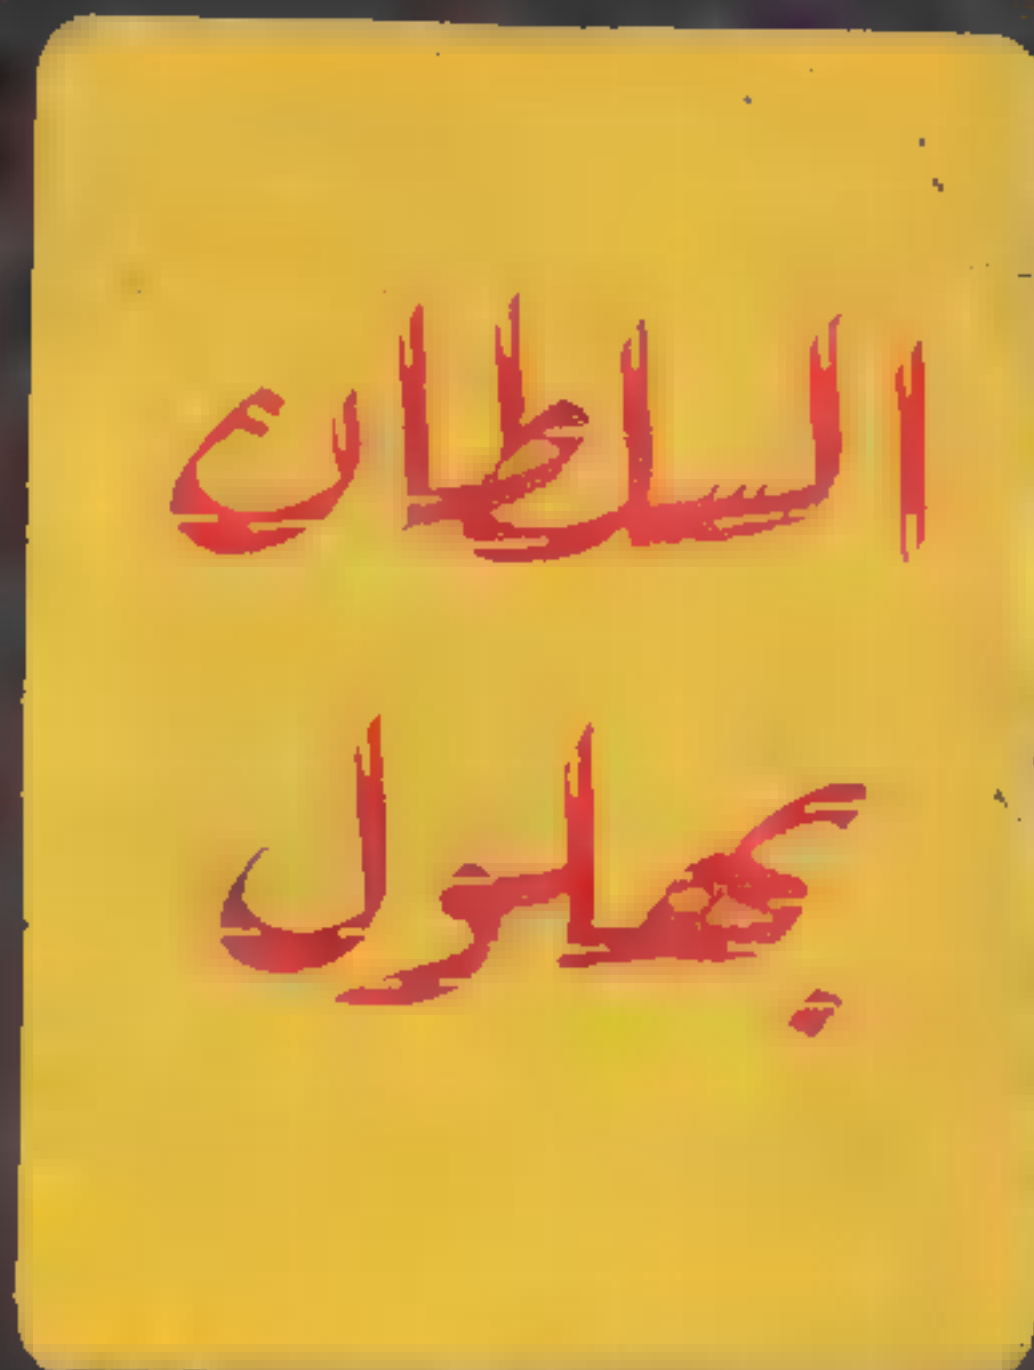 السلطان
بهلول